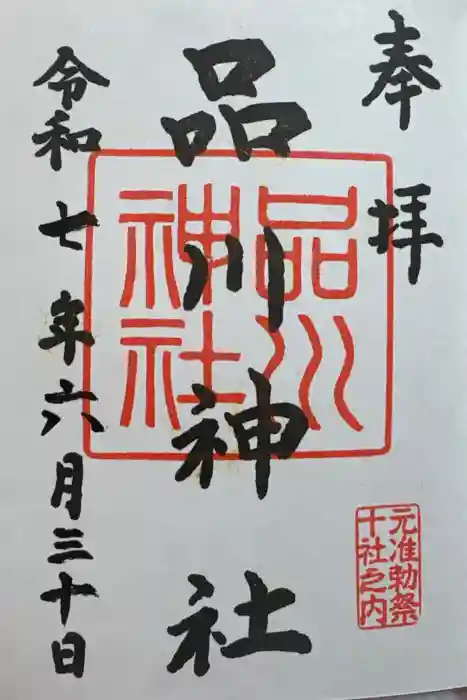 奉拝
品川神社
令和七年六月三十日
品川
神社
元准勅祭
十社之内